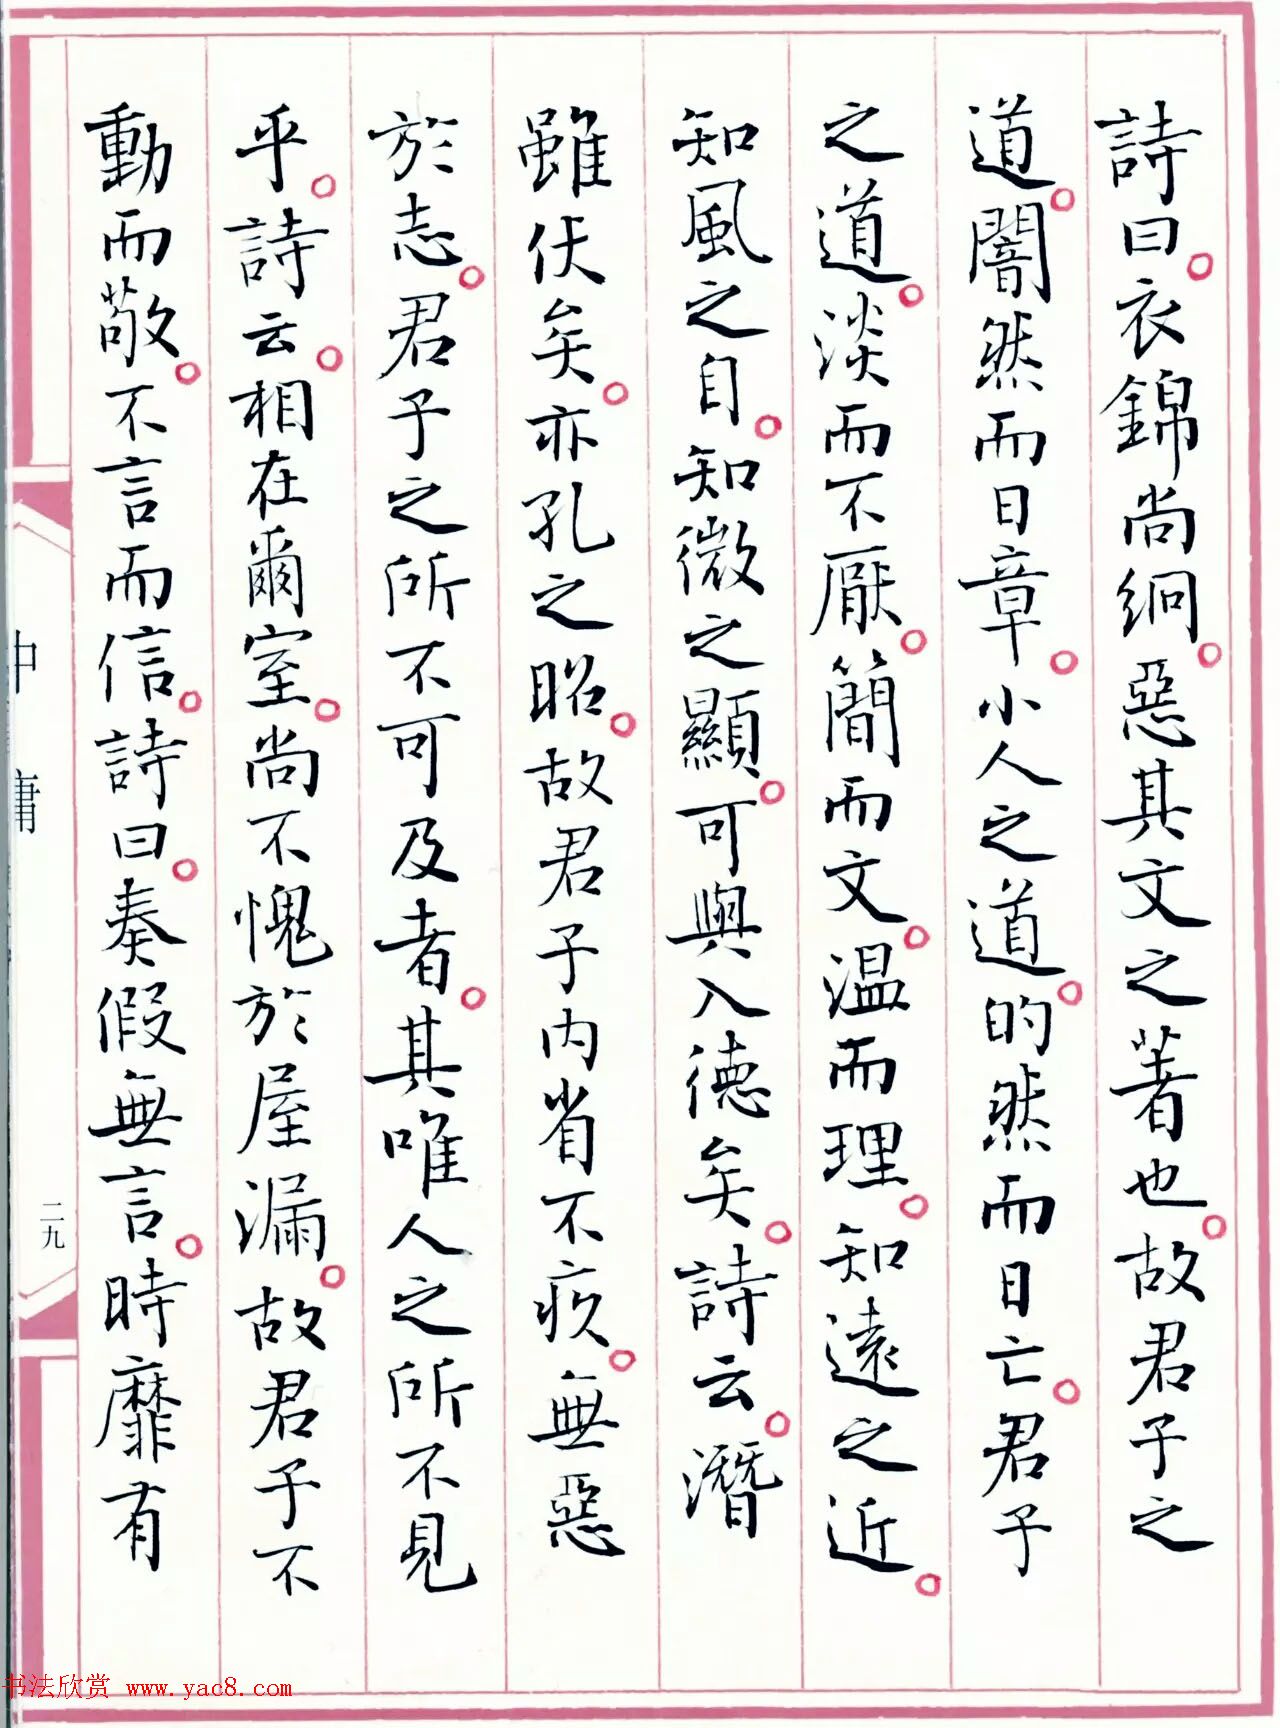 詩曰。衣錦尚絅。惡其文之著也。故君子之
道。闇然而日章。小人之道。的然而日亡。君子
之道。淡而不厭。簡而文。温而理。知遠之近。
知風之自。知微之顯。可與入德矣。詩云。潛
雖伏矣。亦孔之昭。故君子内省不疚。無惡
於志。君子之所不可及者。其唯人之所不見
乎。詩云。相在爾室。尚不愧於屋漏。故君子不
動而敬。不言而信。詩曰。奏假無言。時靡有
中庸
二九
书法欣赏 www.yac8.com